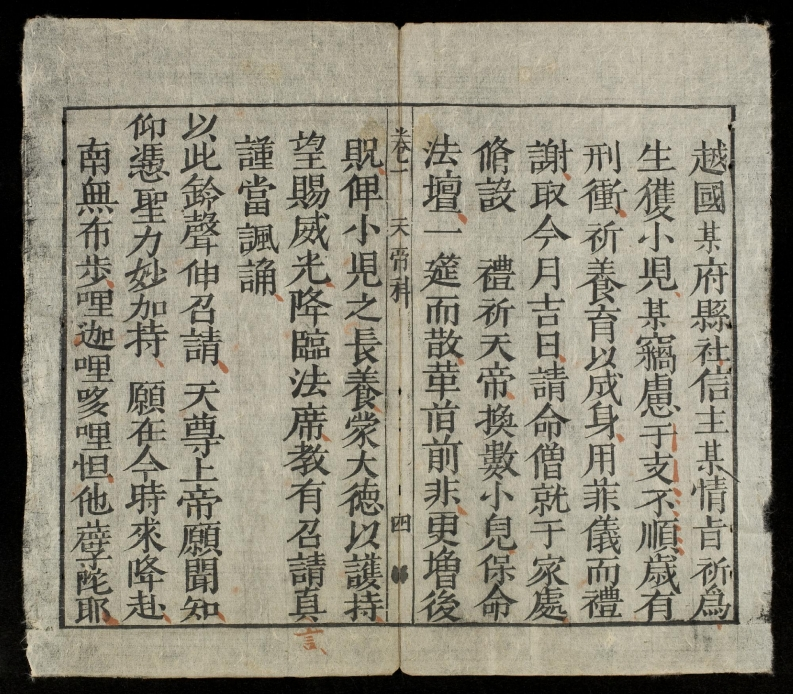 越國某府縣社信主某情旨祈爲
生獲小児某竊慮干支不順歳有
刑衝祈養育以成身用菲儀而禮
謝取今月吉日請命僧就于家處
脩設　禮祈天帝換數小兒保命
法壇一筵而散革前前非更增後
卷一　天帝科　四
貺俾小児之長養蒙大德以護持
望賜威光降臨法席教有召請真
言
謹當諷誦
以此鈴聲伸召請　天尊上帝願聞知
仰憑聖力妙加持　願在今時來降赴
南無布步哩迦哩哆哩怛他蘖陀耶